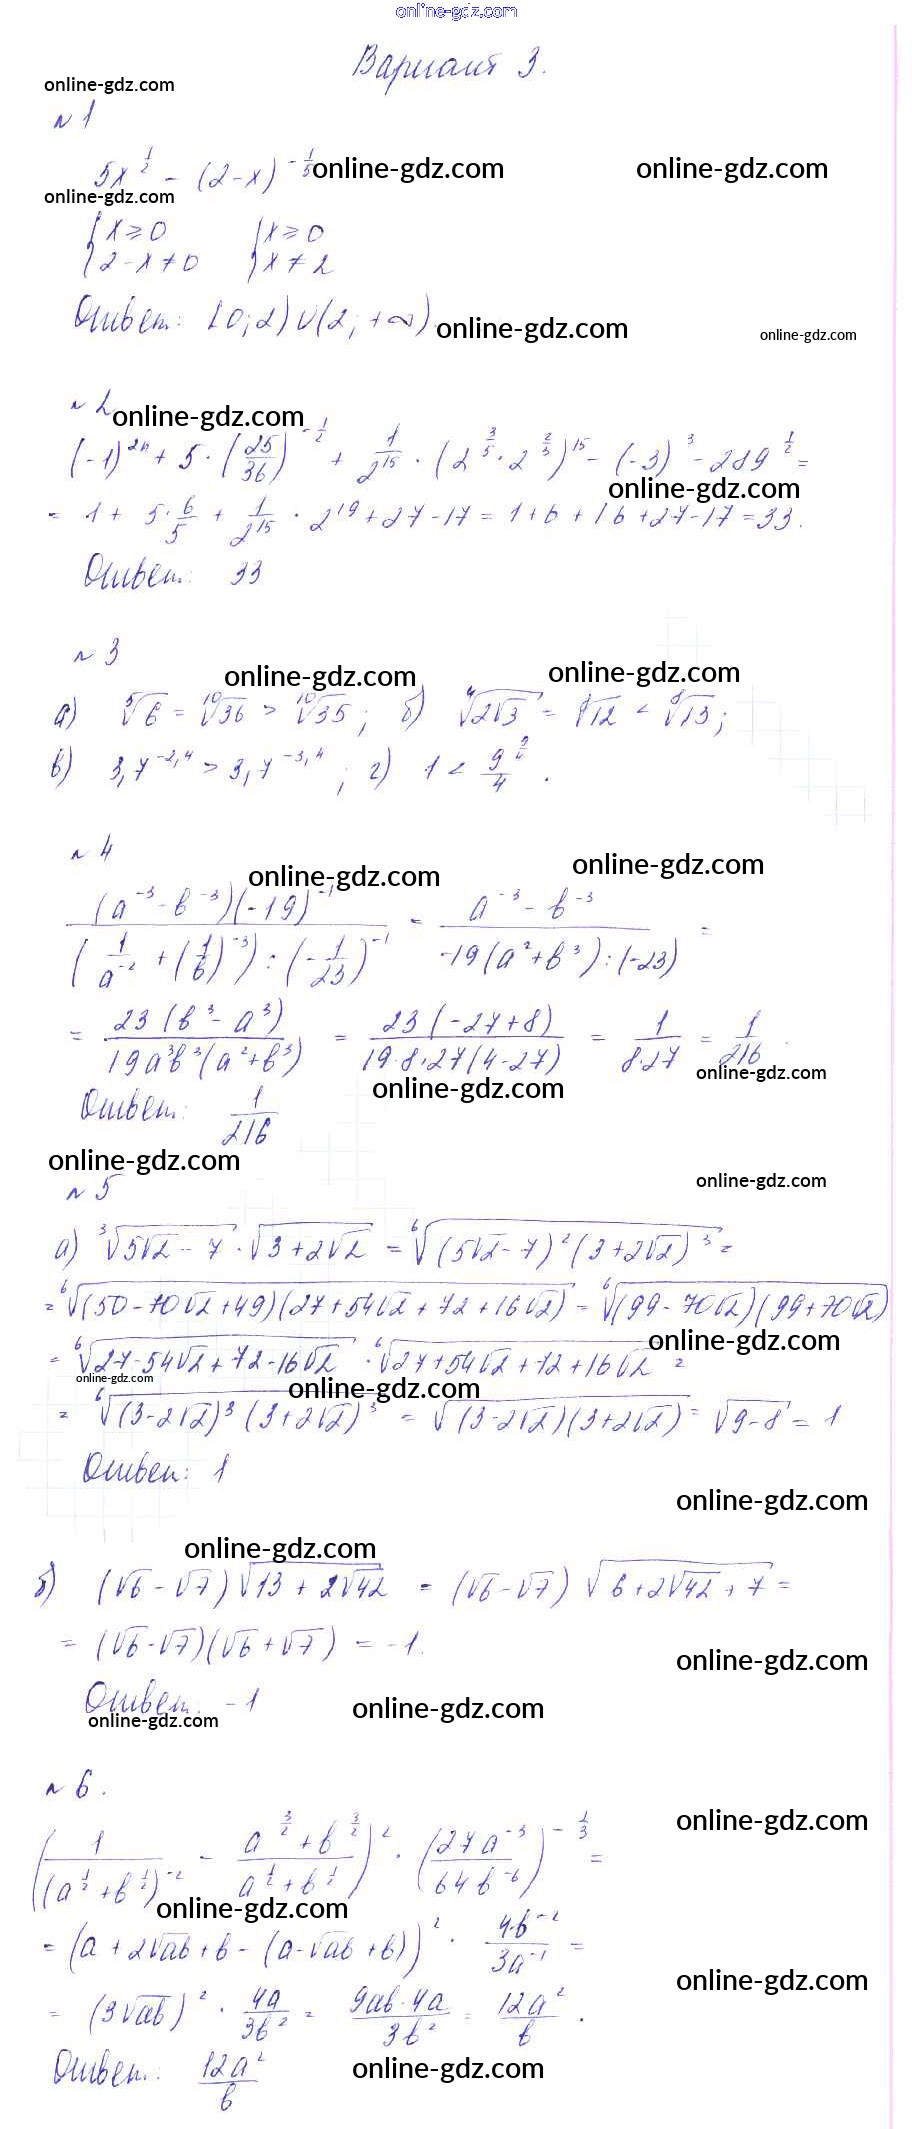 online-gdz.com
Вариант 3.
online-gdz.com
№ 1
5x^(1/2) - (2-x)^(-1/5) online-gdz.com online-gdz.com
online-gdz.com
{x ≥ 0 {x ≥ 0
{2-x ≠ 0 {x ≠ 2
Ответ: [0;2) ∪ (2; +∞). online-gdz.com online-gdz.com
№ 2 online-gdz.com
(-1)^(2n) + 5 · (25/36)^(-1/2) + 1/2^15 · (2^(3/5) · 2^(2/3))^15 - (-3)^3 - 289^(1/2) =
online-gdz.com
= 1 + 5 · 6/5 + 1/2^15 · 2^19 + 27 - 17 = 1 + 6 + 16 + 27 - 17 = 33.
Ответ: 33
№ 3
online-gdz.com online-gdz.com
а) ⁵√6 = ¹⁰√36 > ¹⁰√35; б) ⁴√(2√3) = ⁸√12 < ⁸√13;
в) 3,7^(-2,4) > 3,7^(-3,4); г) 1 <
№ 4
online-gdz.com online-gdz.com
(a^(-3) - b^(-3))(-19)^(-1) / ((1/a^(-2) + (1/b)^(-3)) : (-1/23)^(-1)) = (a^(-3) - b^(-3)) / (-19(a^2 + b^3) : (-23)) =
= 23(b^3 - a^3) / (19a^3b^3(a^2 + b^3)) = 23(-27+8) / (19·8·27(4-27)) = 1/(8·27) = 1/216.
online-gdz.com online-gdz.com
Ответ: 1/216
online-gdz.com online-gdz.com
№ 5
а) ³√(5√2 - 7) · √(3+2√2) = ⁶√((5√2-7)^2 (3+2√2)^3) =
= ⁶√((50-70√2+49)(27+54√2+72+16√2)) = ⁶√((99-70√2)(99+70√2))
online-gdz.com
= ⁶√(27-54√2+72-16√2) · ⁶√(27+54√2+72+16√2) =
online-gdz.com online-gdz.com
= ⁶√((3-2√2)^3 (3+2√2)^3) = √((3-2√2)(3+2√2)) = √(9-8) = 1
Ответ: 1
online-gdz.com
online-gdz.com
б) (√6 - √7)√(13 + 2√42) = (√6 - √7)√(6+2√42+7) =
= (√6-√7)(√6+√7) = -1.
online-gdz.com
Ответ: -1
online-gdz.com online-gdz.com
№ 6.
online-gdz.com
(1/(a^(1/2) + b^(1/2))^(-2) - (a^(3/2) + b^(3/2))/(a^(1/2) + b^(1/2)))^2 · (27a^(-3)/64b^(-6))^(-1/3) =
online-gdz.com
= (a + 2√ab + b - (a - √ab + b))^2 · 4b^(-2)/3a^(-1) =
online-gdz.com
= (3√ab)^2 · 4a/3b^2 = 9ab·4a/3b^2 = 12a^2/b.
Ответ: 12a^2/b
online-gdz.com